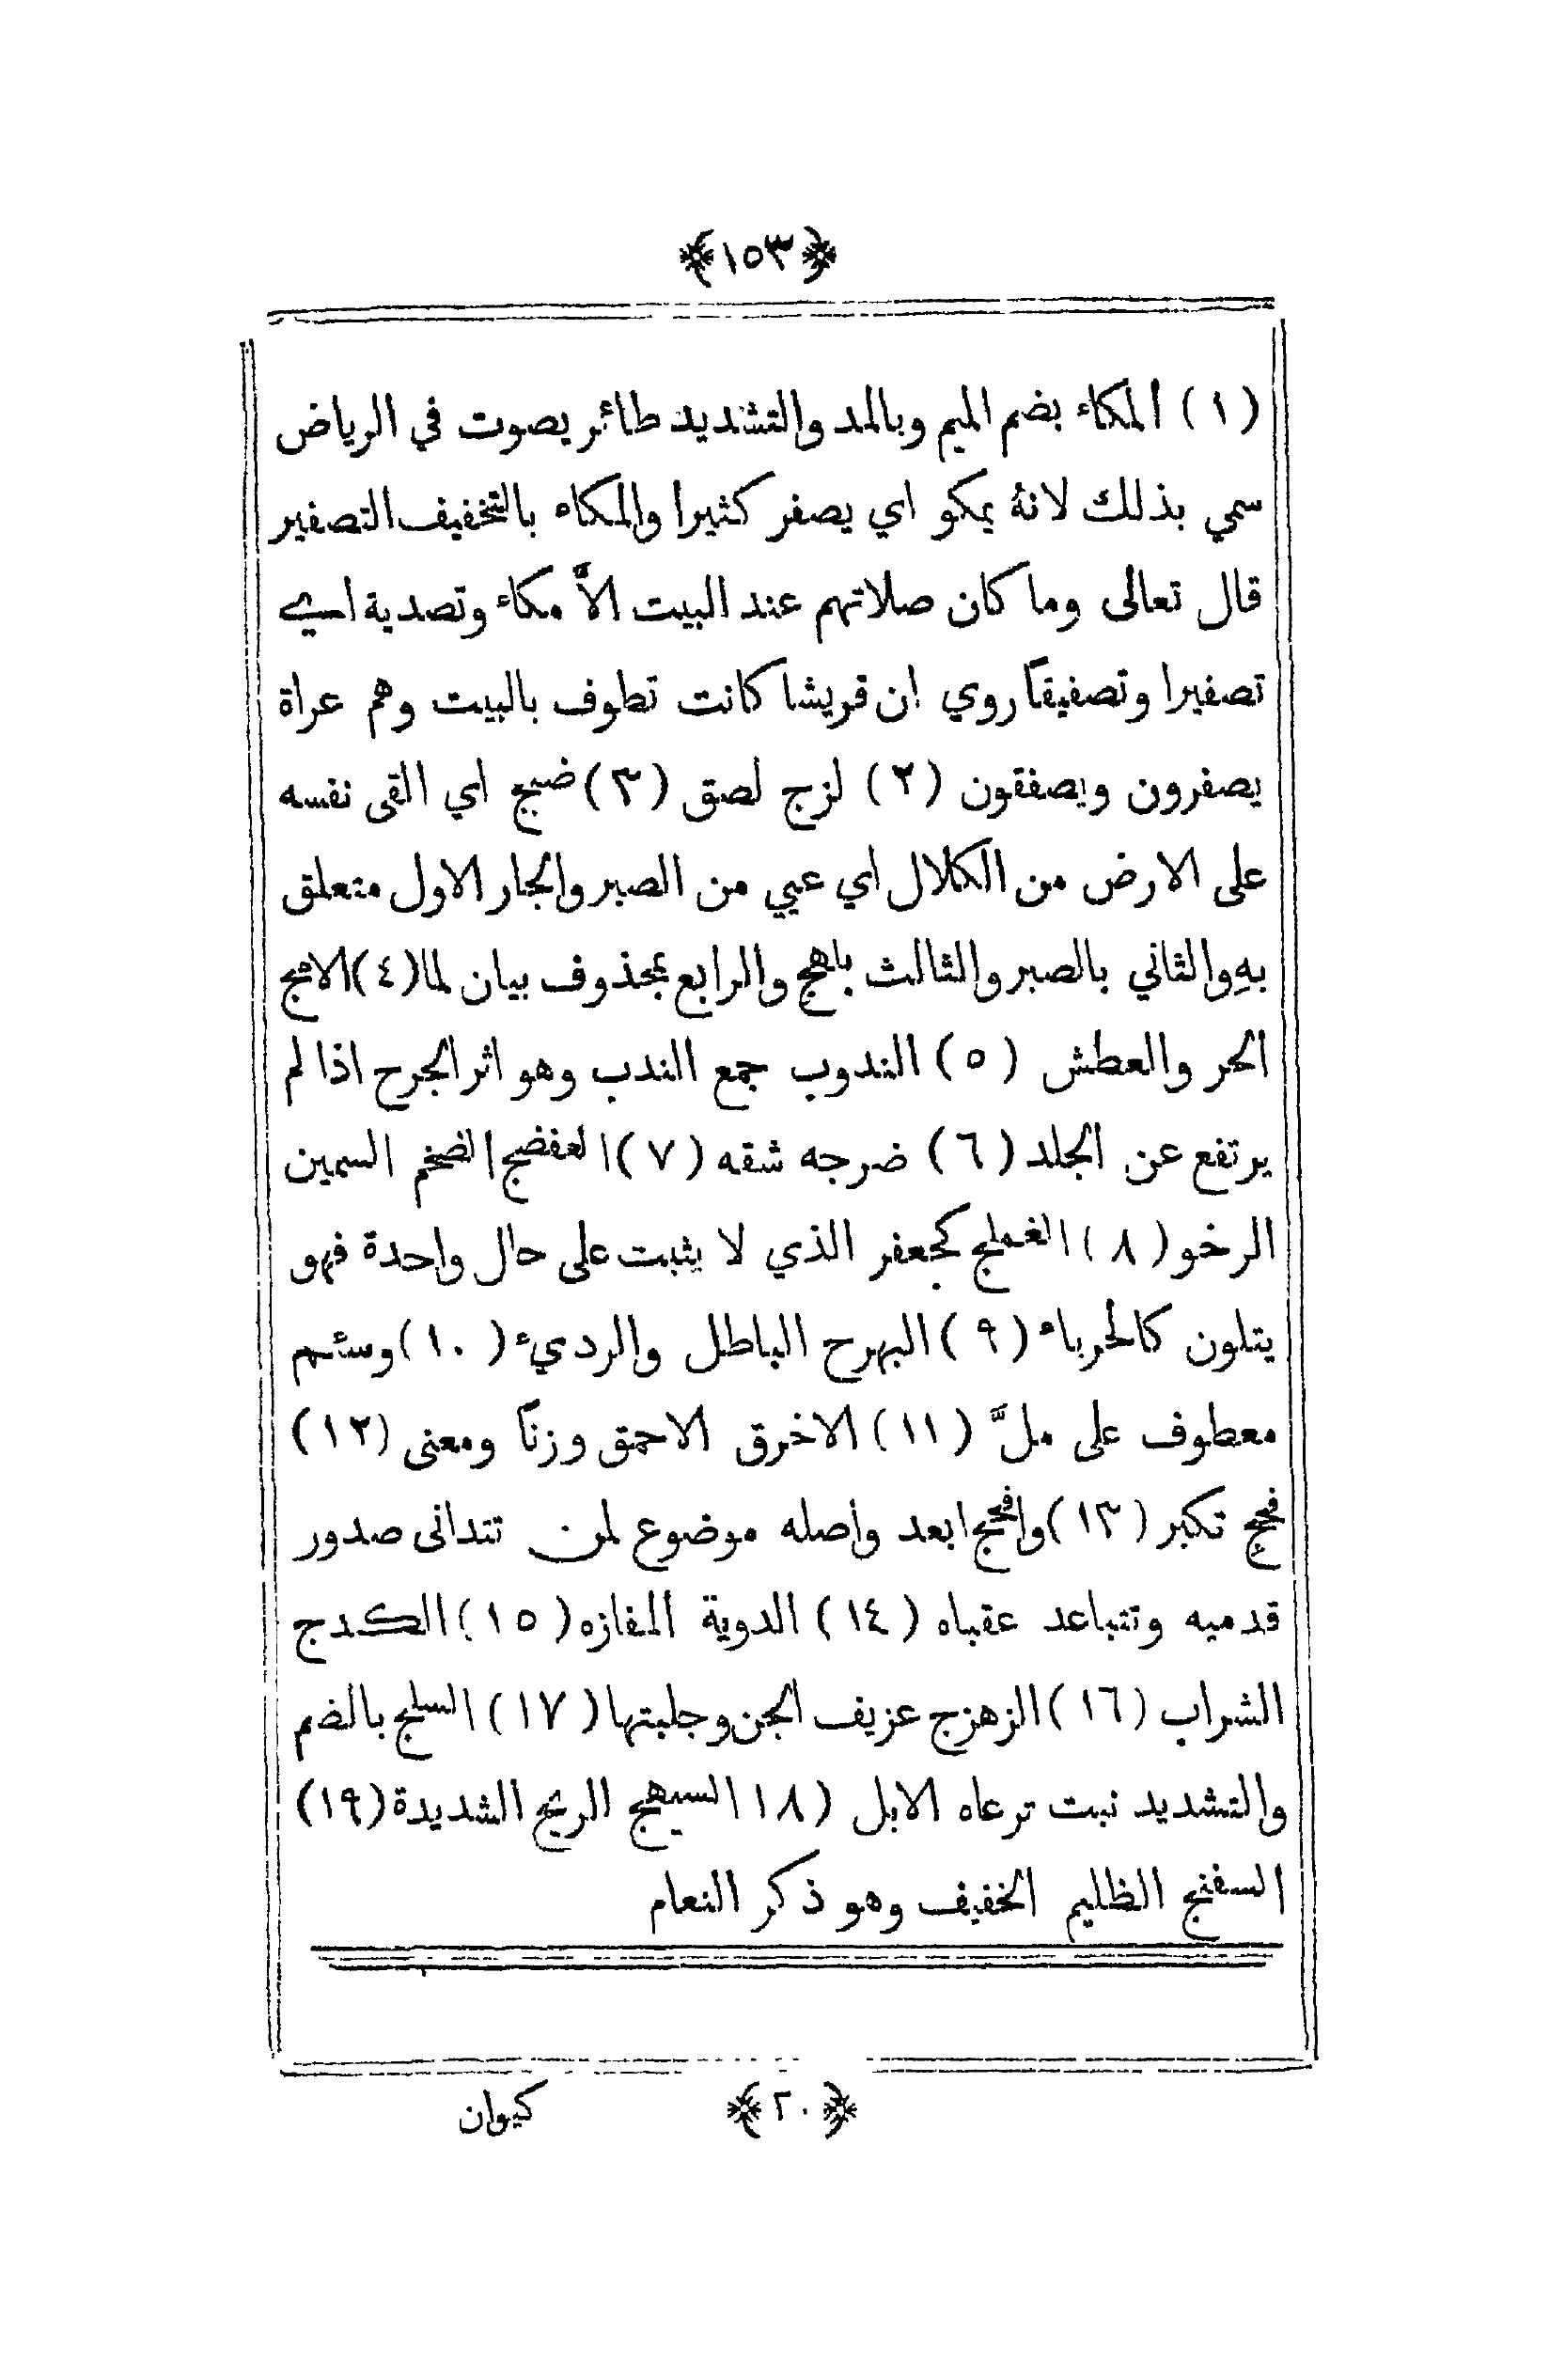 ﴿١٥٣﴾
(١) المكاء بضم الميم وبالمد والتشديد طائر يصوت في الرياض
سمي بذلك لانهُ يمكو اي يصفر كثيرا والمكاه بالتخفيف التصفير
قال تعالى وما كان صلاتهم عند البيت الاَّ مكاء وتصدية اي
تصفيرا وتصفيقاً روي ان قريشا كانت تطوف بالبيت وهم عراة
يصفرون ويصفقون (٢) لزج لصق (٣) ضبج اي القى نفسه
على الارض من الكلال اي عيي من الصبر والجار الاول متعلق
بهِ والثاني بالصبر والثالث باهج والرابع بمحذوف بيان لما (٤) الامج
الحر والعطش (٥) الندوب جمع الندب وهو اثر الجرح اذا لم
يرتفع عن الجلد (٦) ضرجه شقه (٧) العفضج الضخم السمين
الرخو (٨) الغملج كجعفر الذي لا يثبت على حال واحدة فهو
يتلون كالحرباء (٩) البهرج الباطل والرديء (١٠) وسئم
معطوف على ملَّ (١١) الاخرق الاحمق وزناً ومعنى (١٢)
فجج تكبر (١٣) وافحج ابعد واصله موضوع لمن تتدانى صدور
قدميه وتتباعد عقباه (١٤) الدوية المفازه (١٥) الكدج
الشراب (١٦) الزهزج عزيف الجن وجلبتها (١٧) السلج بالضم
والتشديد نبت ترعاه الابل (١٨ السيهج الريح الشديدة (١٩)
السفنج الظليم الخفيف وهو ذكر النعام
﴿٢٠﴾ كيوان